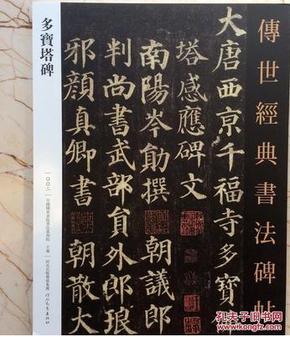 傳世經典書法碑帖
大唐西京千福寺多寶
塔感應碑文
南陽岑勛撰 朝議郎
判尚書武部員外郎琅
邪顏真卿書 朝散大
多寶塔碑